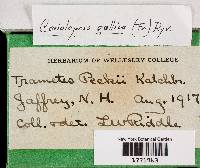 Coriolopsis gallica (Fr.) Ryv.
HERBARIUM OF WELLESLEY COLLEGE
Trametes Peckii Kalchbr.
Jaffrey, N. H. Aug. 1917
Coll. + det. L. W. Riddle
New York Botanical Garden